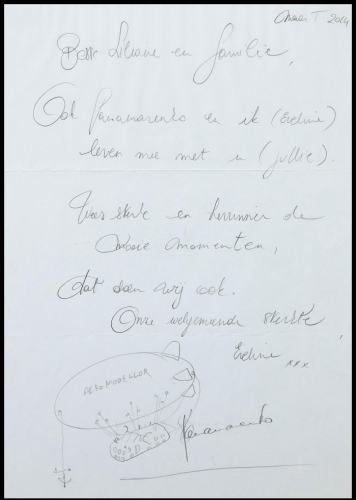 2014
Beste Liliane en familie,
Ook Panamarenko en ik (Eveline)
leven mee met u (jullie).
Wees sterk en herinner de
mooie momenten,
dat doen wij ook.
Onze welgemeende sterkte,
Eveline xxx
AEROMODELLER
Panamarenko